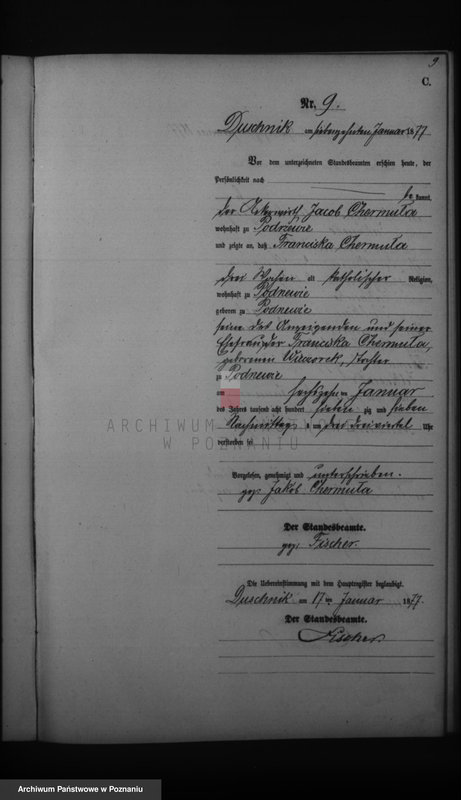 9
C.
Nr. 9.
Duschnik am siebzehnten Januar 1877
Vor dem unterzeichneten Standesbeamten erschien heute, der
Persönlichkeit nach
be kannt,
der Ackerwirth Jacob Chermuła
wohnhaft zu Podrzewie
und zeigte an, daß Franciska Chermuła
drei Wochen alt katholischer Religion,
wohnhaft zu Podrzewie
geboren zu Podrzewie
seine des Anzeigenden und seiner
Ehefrau der Franciska Chermuła,
geborenen Wieczorek, Tochter
zu Podrzewie
am sechszehn ten Januar
des Jahres tausend acht hundert sieben zig und sieben
Nachmittags um drei dreiviertel Uhr
verstorben sei
ARCHIWUM PAŃSTWOWE
W POZNANIU
Vorgelesen, genehmigt und unterschrieben.
gez. Jakob Chermuła
Der Standesbeamte.
gez. Fischer.
Die Uebereinstimmung mit dem Hauptregister beglaubigt.
Duschnik am 17 ten Januar 1877.
Der Standesbeamte.
Fischer
Archiwum Państwowe w Poznaniu